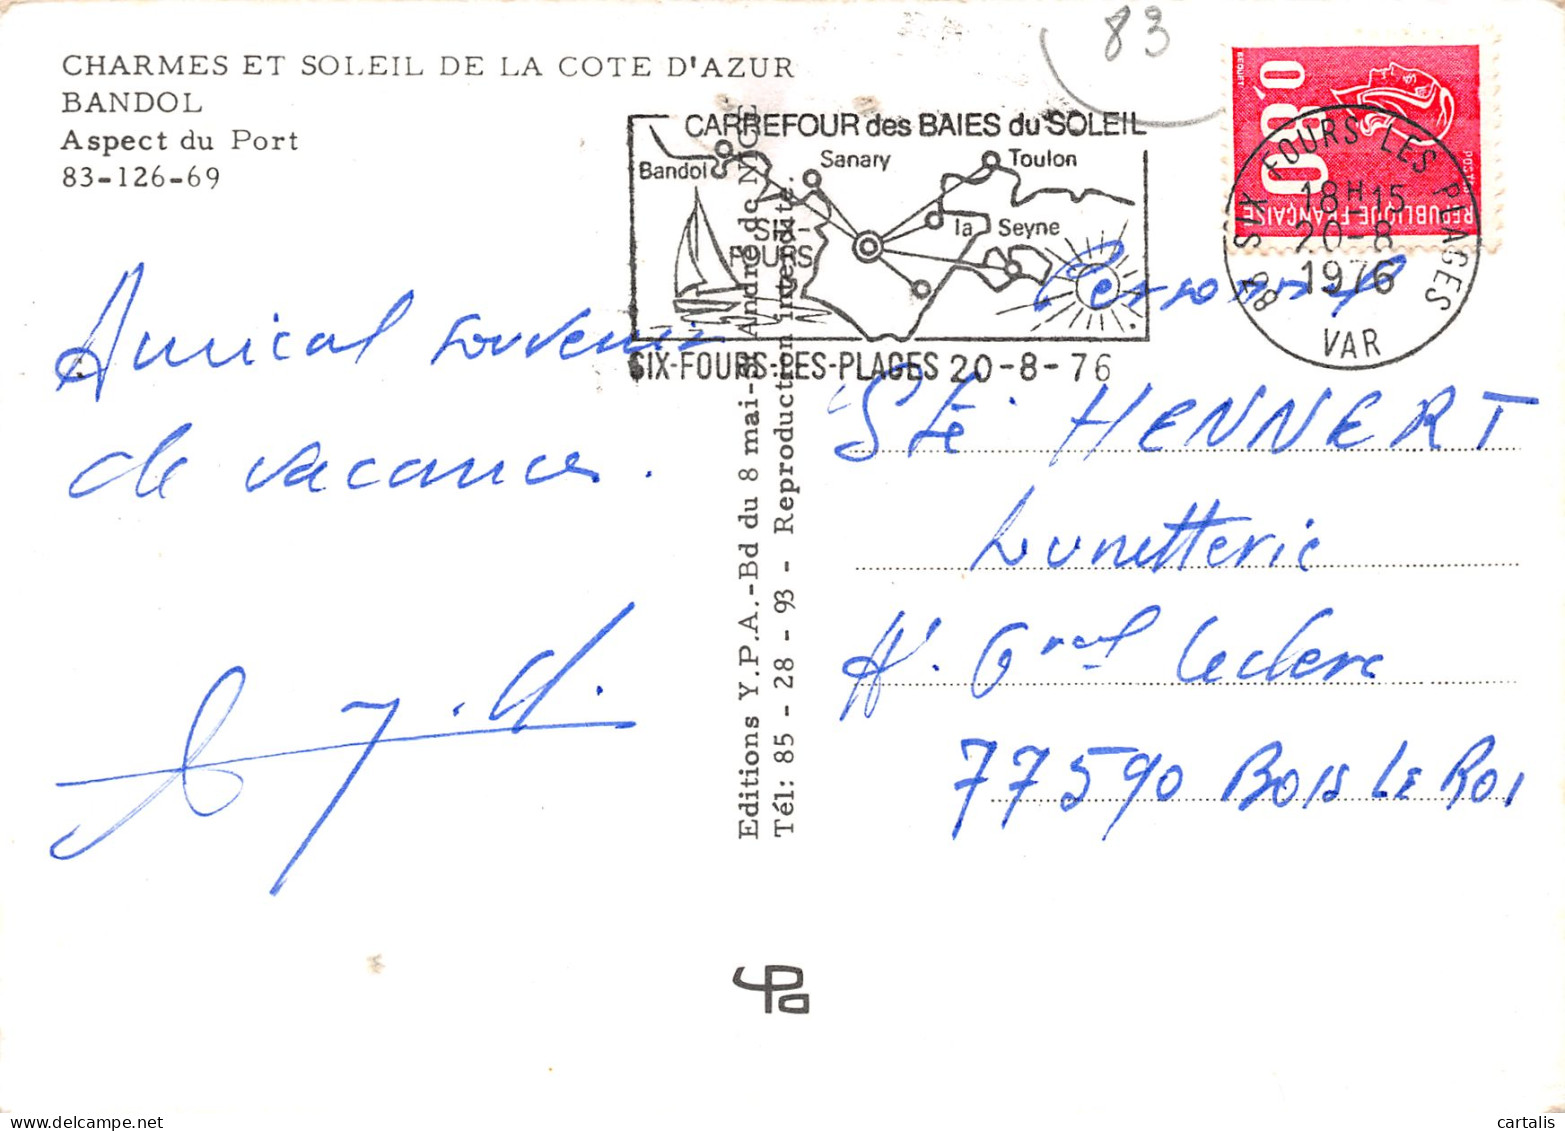 83
CHARMES ET SOLEIL DE LA COTE D'AZUR
BANDOL
Aspect du Port
83-126-69
CARREFOUR des BAIES du SOLEIL
Bandol
Sanary
Toulon
SIX-
FOURS
la Seyne
SIX-FOURS-LES-PLAGES 20-8-76
BEQUET
0,80
POSTES
REPUBLIQUE FRANÇAISE
83 SIX FOURS LES PLAGES
18H15
20-8
1976
VAR
Amical souvenir
de vacances.
Editions Y.P.A.-Bd du 8 mai-St André de NICE
Tél: 85 - 28 - 93 - Reproduction interdite.
Personnel
Sté HENNERT
Lunetterie
Gral Leclerc
77590 BOIS LE ROI
ypa
www.delcampe.net
cartalis